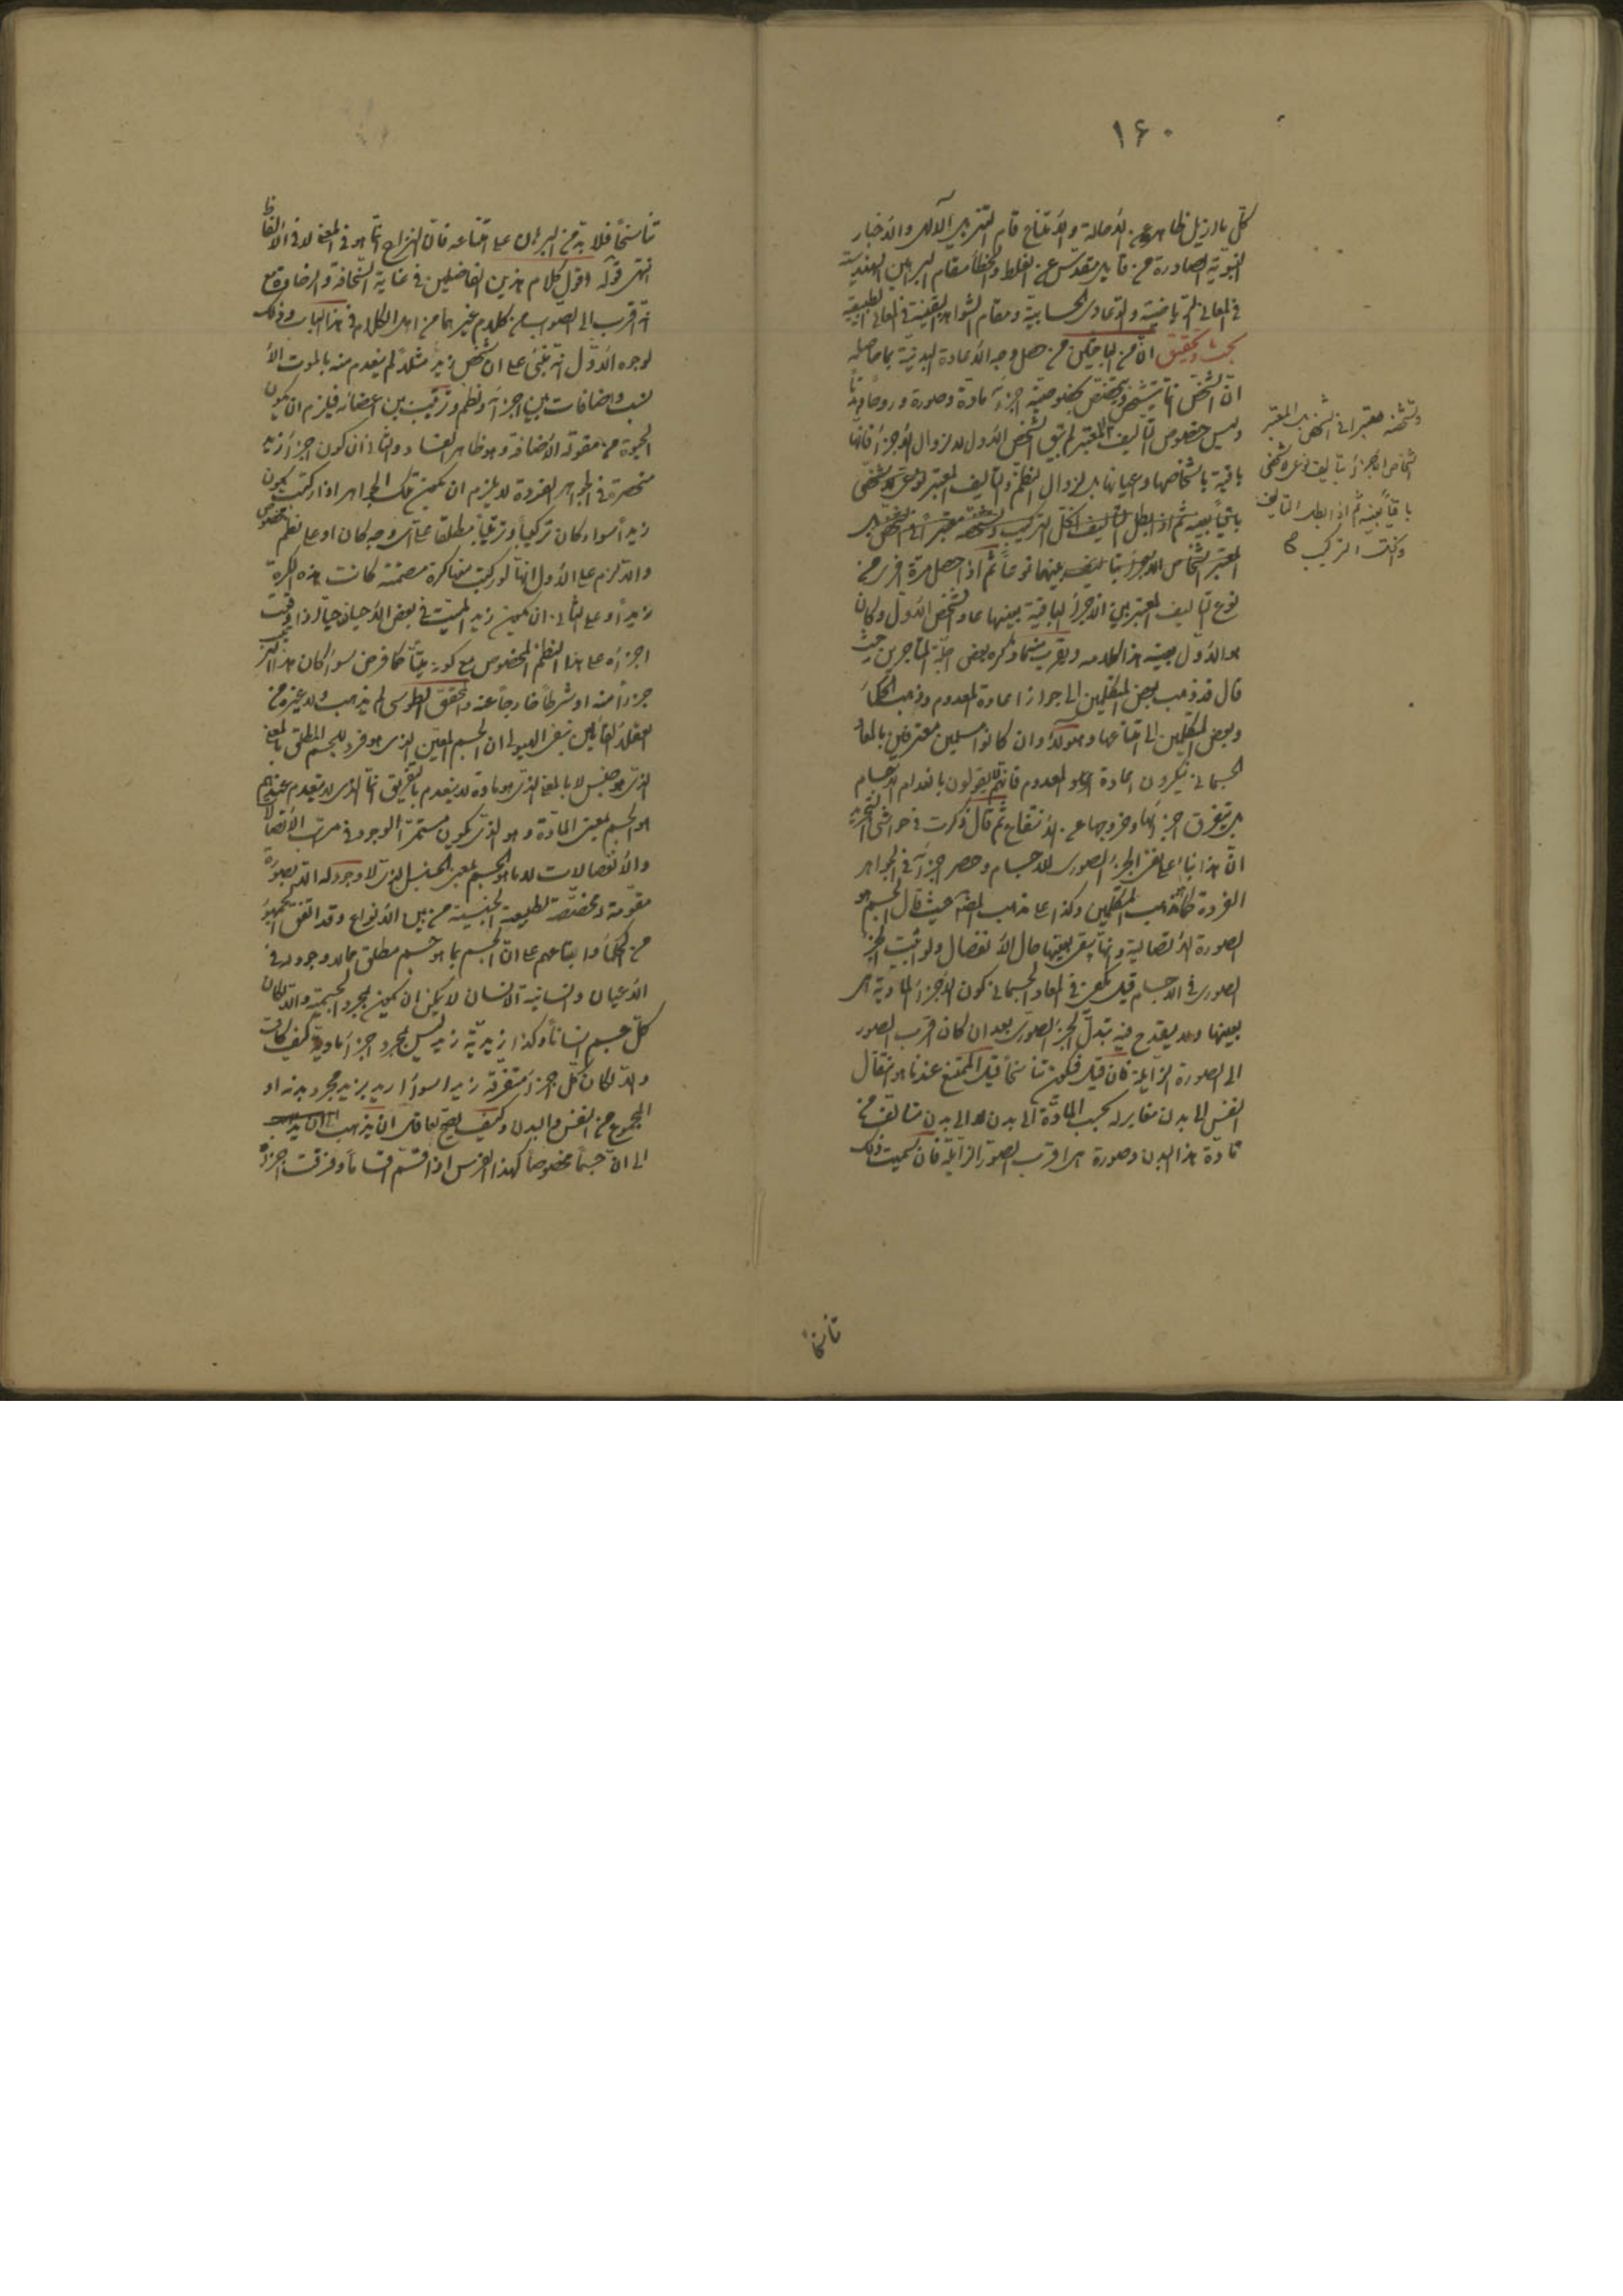 ١۶٠
كلّ بلا دليل ظاهر عن الاحالة والامتناع قام التنزيل الالهى والاخبار
النبوية الصادرة من قايل مقدس عن الغلط والخطأ مقام البراهين الهندسية
فى المعانى الرياضية والدعاوى الحسابية ومقام الشواهد اليقينية فى المعانى الطبيعية
بحث وتحقيق انّ من الباحثين من حصل وجه الاعادة البدنية بما حاصله
انّ الشخص انما يتشخص ويختص بخصوصية اجزائه مادة وصورة وروحا وبدنا
وليس خصوص التاليف المعتبر لم يبق الشخص الاول لا لزوال الاجزاء فانها
باقية باشخاصها واعيانها بل لزوال النظم والتاليف المعتبر نوعى لا شخصى
باقيا بعينه ثم اذا بطل التاليف انحل التركيب وتشخصه معتبرا فى الشخص بل
المعتبر اشخاص الاجزاء بتاليف بينها نوعا ثم اذا حصل مرة اخرى من
نوع التاليف المعتبر بين الاجزاء الباقية بعينها عاد الشخص الاول وكان
هو الاول بعينه هذا كلامه ويقرب منه ما ذكره بعض اجلة المتاخرين حيث
قال قد ذهب بعض المتكلمين الى جواز اعادة المعدوم وذهب الحكماء
وبعض المتكلمين الى امتناعها وهؤلاء وان كانوا مسلمين معترفين بالمعاد
الجسمانى ينكرون اعادة المعدوم فانهم لا يقولون بانعدام الاجسام
بل بتفرق اجزائها وخروجها عن الانتفاع ثم قال ذكرت فى حواشى التجريد
انّ هذا بناء على نفى الجزء الصورى للاجسام وحصر اجزائه فى الجواهر
الفردة كما هو مذهب المتكلمين وكذا على مذهب المص حيث قال الجسم هو
الصورة الاتصالية وانها تبقى بعينها حال الانفصال ولو اثبت الجزء
الصورى فى الاجسام قيل يكفى فى المعاد الجسمانى كون الاجزاء المادية هى
بعينها ولا يقدح فيه تبدل الجزء الصورى بعد ان كان اقرب الصور
الى الصورة الزايلة فان قيل فيكون تناسخا قيل الممتنع عندنا هو انتقال
النفس الى بدن مغاير له بحسب المادة لا الى بدن متالف من
مادة هذا البدن وصورة هى اقرب الصور الى الزايلة فان سميت ذلك
وتشخصه معتبرا فى الشخص بل المعتبر
اشخاص الاجزاء بتاليف نوعى لا شخصى
باقيا بعينه ثم اذا بطل التاليف
وانحلت التركيب
تناسخا
تناسخا فلا بد من البرهان على امتناعه فان النزاع انما هو فى المعنى لا فى الالفاظ
انتهى قوله اقول كلام هذين الفاضلين فى غاية السخافة والرخاوة مع
انه اقرب الى الصواب من كلام غيرهما من اهل الكلام فى هذا الباب وذلك
لوجوه الاول انه يبتنى على ان شخص زيد مثلا لم ينعدم منه بالموت الا
نسب واضافات بين اجزائه ونظم وترتيب بين اعضائه فيلزم ان يكون
الحيوة من مقولة الاضافة وهو ظاهر الفساد والثانى ان كون اجزاء زيد
منحصرة فى الجواهر الفردة لا يلزم ان يكون تلك الجواهر اذا ركبت يكون
زيدا سواء كان تركيبا وترتيبا مطلقا على اى وجه كان او على نظم مخصوص
والا لزم على الاول انها لو ركبت منها كرة مصمتة كانت هذه الكرة
زيدا وعلى الثانى ان يكون زيد الميت فى بعض الاحيان حيا اذا وقعت
اجزاؤه على هذا النظم المخصوص مع كونه ميتا كما فرض سواء كان هذا الترتيب
جزءا منه او شرطا خارجا عنه والمحقق الطوسى لم يذهب ولا غيره من
العقلاء القائلين بنفى الهيولى ان الجسم المعين الذى هو فرد للجسم المطلق بالمعنى
الذى هو جنس لا بالمعنى الذى هو مادة لا ينعدم بالتفريق انما الذى لا ينعدم عندهم
هو الجسم بمعنى المادة وهو الذى يكون مستمر الوجود فى مراتب الاتصالات
والانفصالات لا ما هو الجسم بمعنى الجنس الذى لا وجود له الا بصورة
مقومة له مخصصة لطبيعة الجنسية من بين الانواع وقد اتفق الجمهور
من الحكماء واتباعهم على انّ الجسم بما هو جسم مطلق مما لا وجود له فى
الاعيان وانسانية الانسان لا يمكن ان يكون بمجرد الجسمية والا لكان
كل جسم انسانا وكذا زيدية زيد ليس بمجرد اجزاء مادية كيف كانت
والا لكان كل اجزاء متفرقة زيدا سواء اريد بزيد مجرد بدنه او
المجموع من النفس والبدن وكيف يصح لعاقل ان يذهب
الى انّ جسما مخصوصا كهذا الفرس اذا قسم اقساما وفرقت اجزاؤه